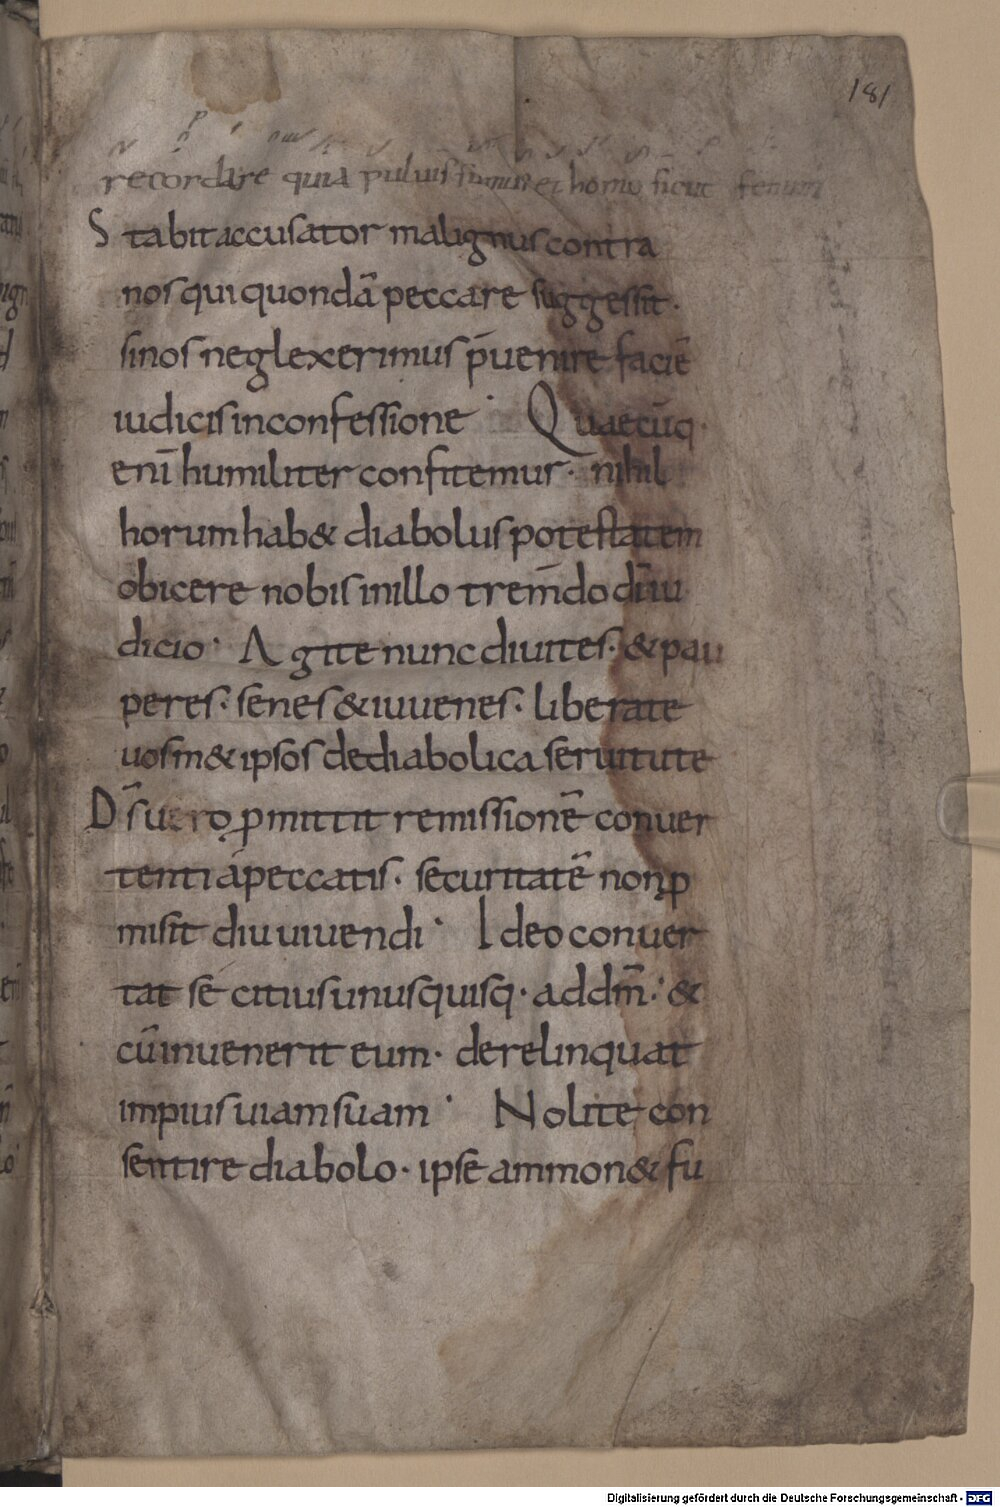 181
recordare quia puluis sumus et homo sicut fenum
S tabit accusator malignus contra
nos qui quondā peccare suggessit·
si nos neglexerimus p̄uenire faciē
iudicis in confessione· Quaecūq·
enī humiliter confitemur· nihil
horum hab& diabolus potestatem
obicere nobis in illo trem̄do dī iu
dicio· Agite nunc diuites· & pau
peres· senes & iuuenes· liberate
uosm& ipsos de diabolica seruitute
D̄s uero ꝓmittit remissionē conuer
tenti a peccatis· securitatē non ꝓ
misit diu uiuendi· Ideo conuer
tat se citius unusquisq· ad dm̄· &
cū inuenerit eum· derelinquat
impius uiam suam· Nolite con
sentire diabolo· ipse ammon& fu
Digitalisierung gefördert durch die Deutsche Forschungsgemeinschaft - DFG